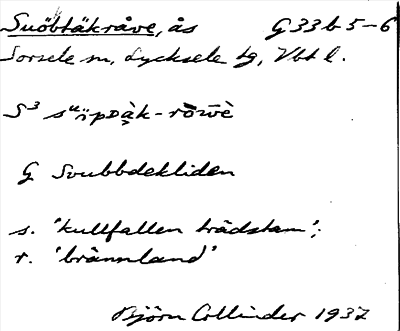 Suöbtäkråve, ås G 33 b 5-6
Sorsele sn, Lycksele tg, Vbt l.
S³
G Svubbdekliden
s. 'kullfallen trädstam';
r. 'brännland'
Björn Collinder 1937